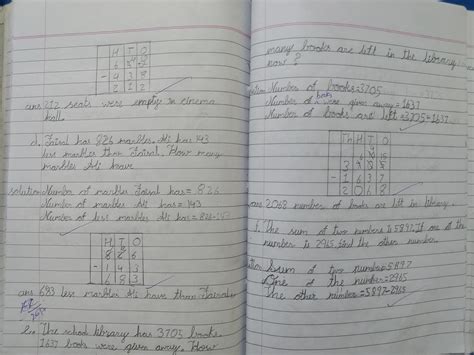 H T O
- 4 3 8
2 1 2
ans 212 seats were empty in cinema
hall.
d. Faisal has 826 marbles. Ali has 143
less marbles than Faisal. How many
marbles Ali have
solution Number of marbles Faisal has = 826
Number of marbles Ali has = 143
Number of less marbles Ali has = 826-
H T O
8 2 6
- 1 4 3
6 8 3
ans 683 less marbles Ali have than Faisal.
e. The school library has 3705 books.
1637 books were given away. How
many books are left in the library
now?
Number of books = 3705
Number of books were given away = 1637
Number of books are left = 3705 - 1637
Th H T O
- 1 6 3 7
2 0 6 8
ans. 2068 number of books are left in library.
f. The sum of two numbers is 5897. If one of the
number is 2965. find the other number.
Sum of two number = 5897
One of the number = 2965
The other number = 5897 - 2965